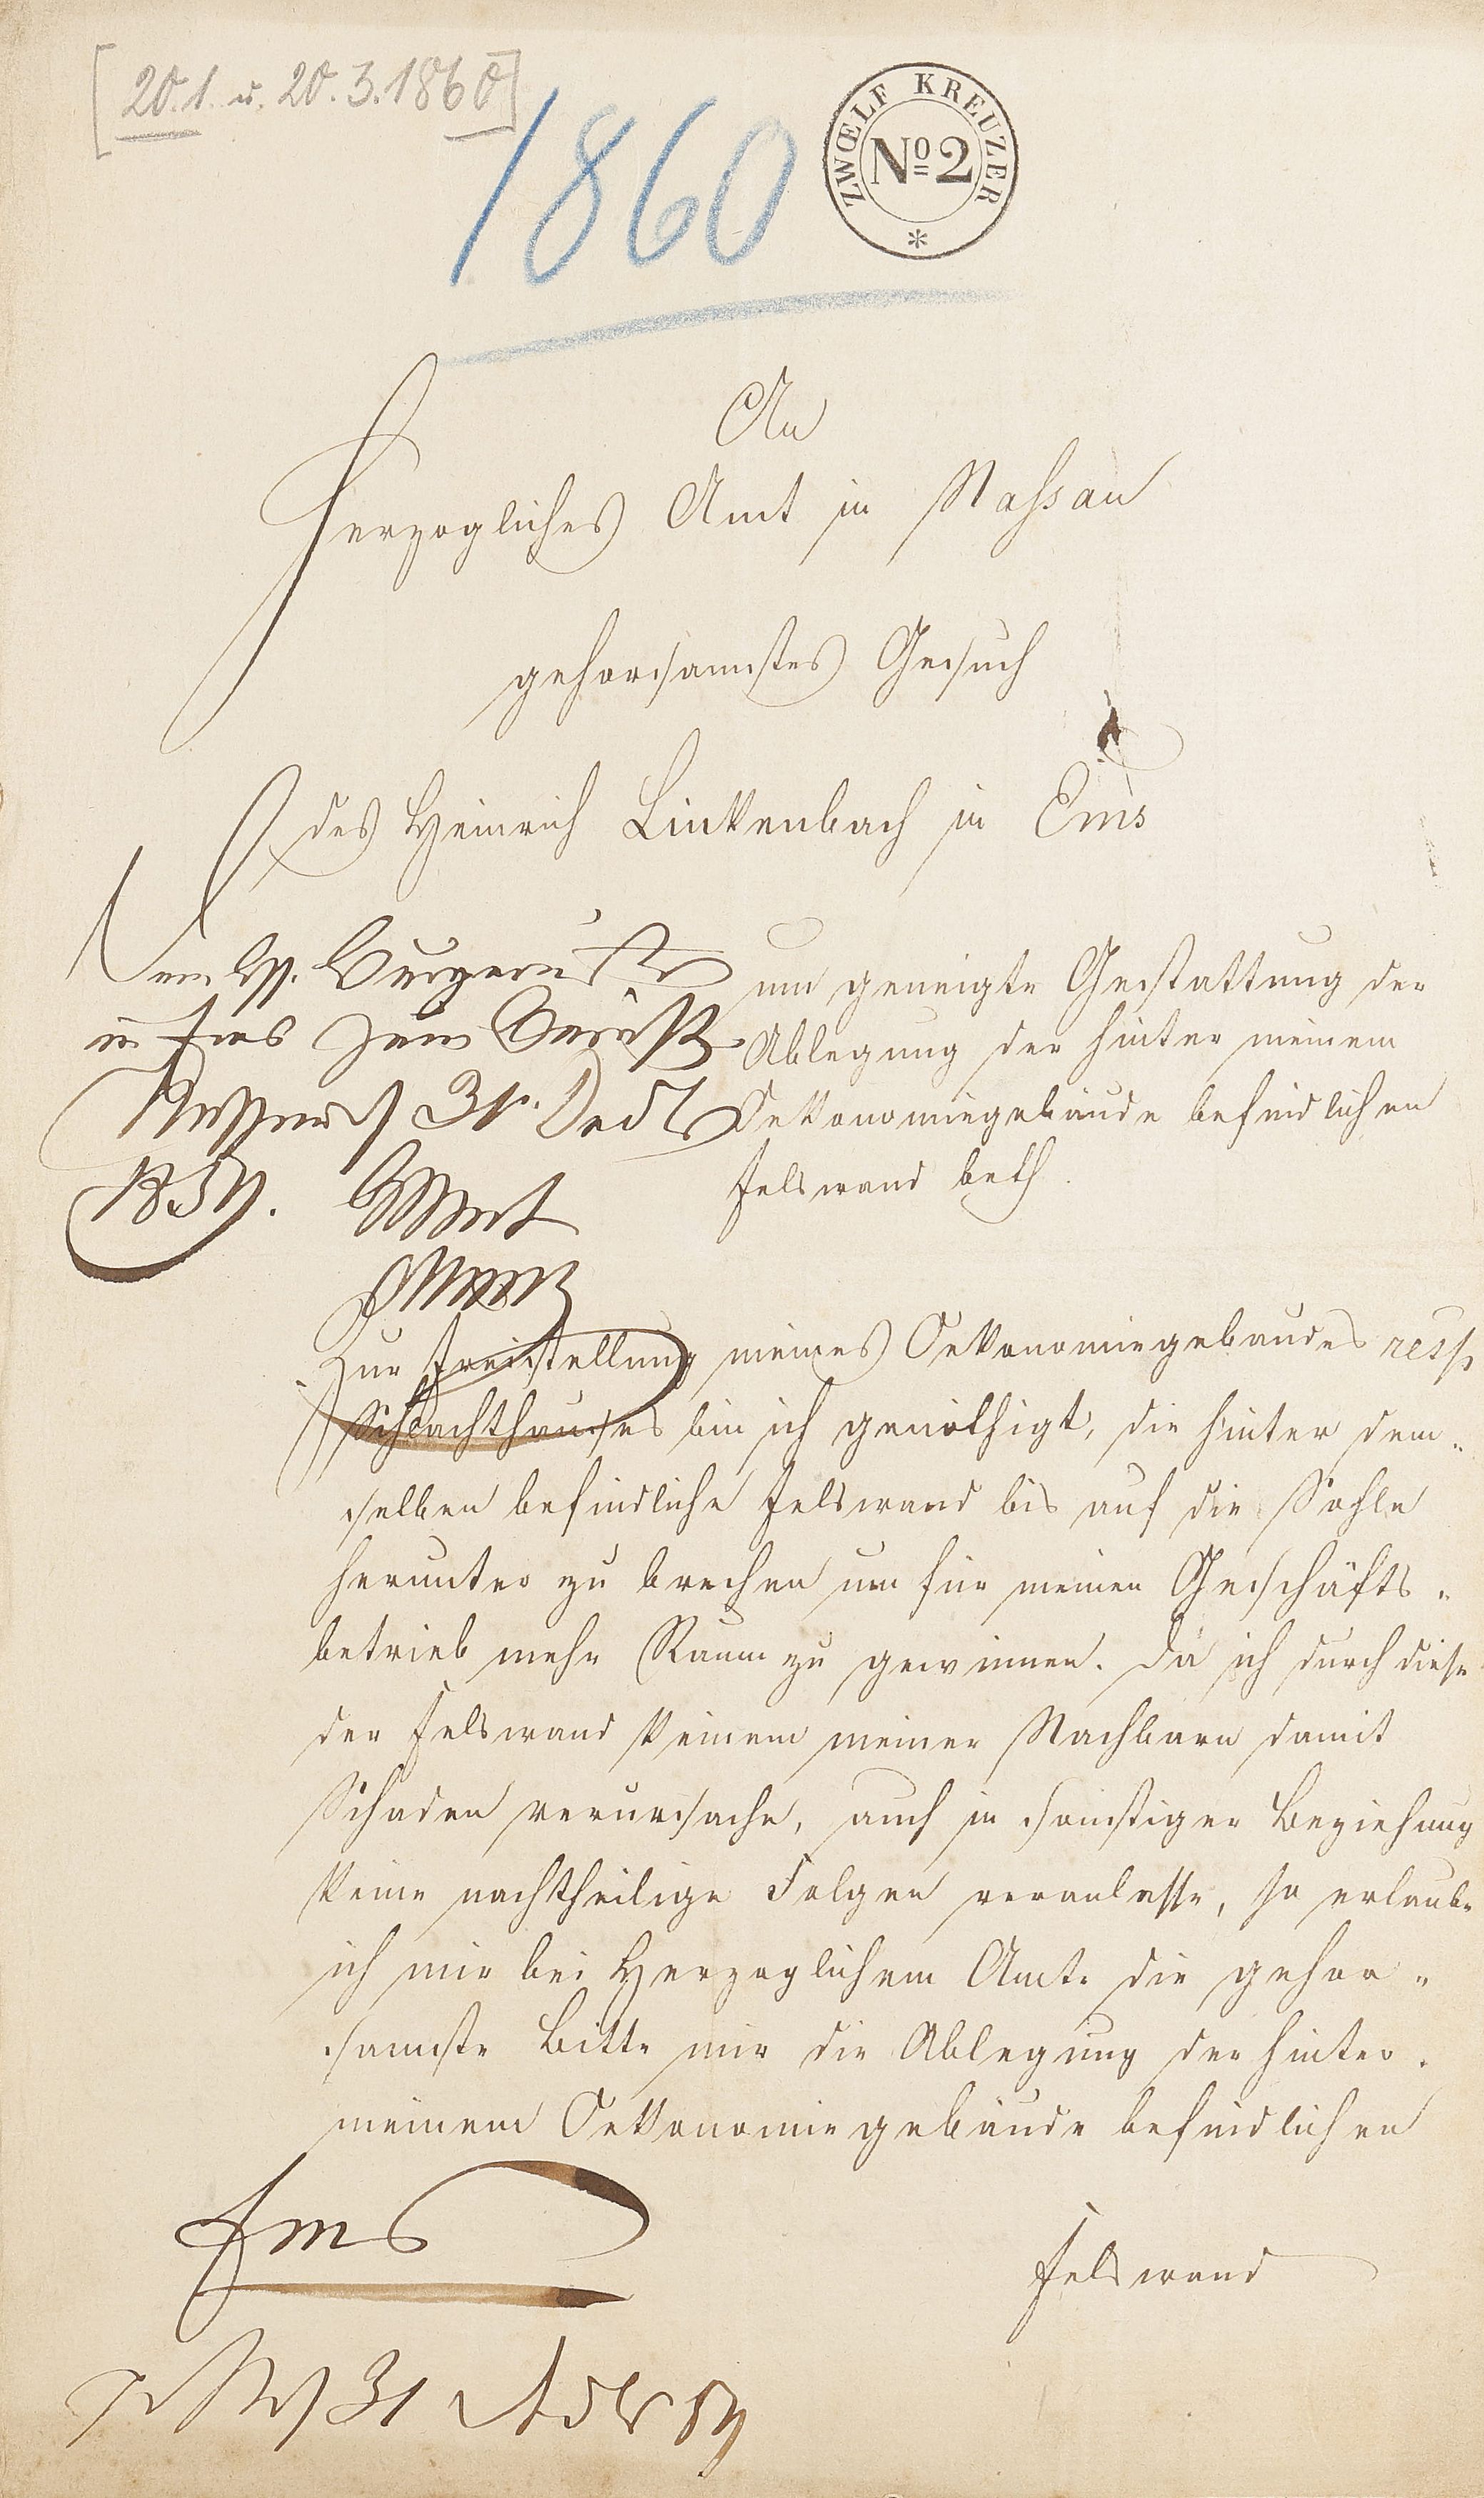 [20.1. u. 20.3.1860]
1860
ZWŒLF KREUZER
No 2
An
Herzogliches Amt in Nassau
gehorsamstes Gesuch
des Heinrich Linkenbach in Ems
um geneigte Gestattung der
Ablegung der hinter meinem
Oekonomiegebäude befindlichen
Felswand betr.
in Ems zum Bericht
Nassau d 31. Dec
1859.
Zur Freistellung meines Oekonomiegebaudes resp
Schlachthauses bin ich genöthigt, die hinter dem-
selben befindliche Felswand bis auf die Sohle
herunter zu brechen um für meinen Geschäfts-
betrieb mehr Raum zu gewinnen. Da ich durch diese
der Felswand keinem meiner Nachbarn damit
Schaden verursache, auch in sonstiger Beziehung
keine nachtheilige Folgen veranlasse, so erlaube
ich mir bei Herzoglichem Amte die gehor-
samste Bitte mir die Ablegung der hinter
meinem Oekonomiegebäude befindlichen
Felswand
Ems
31 59